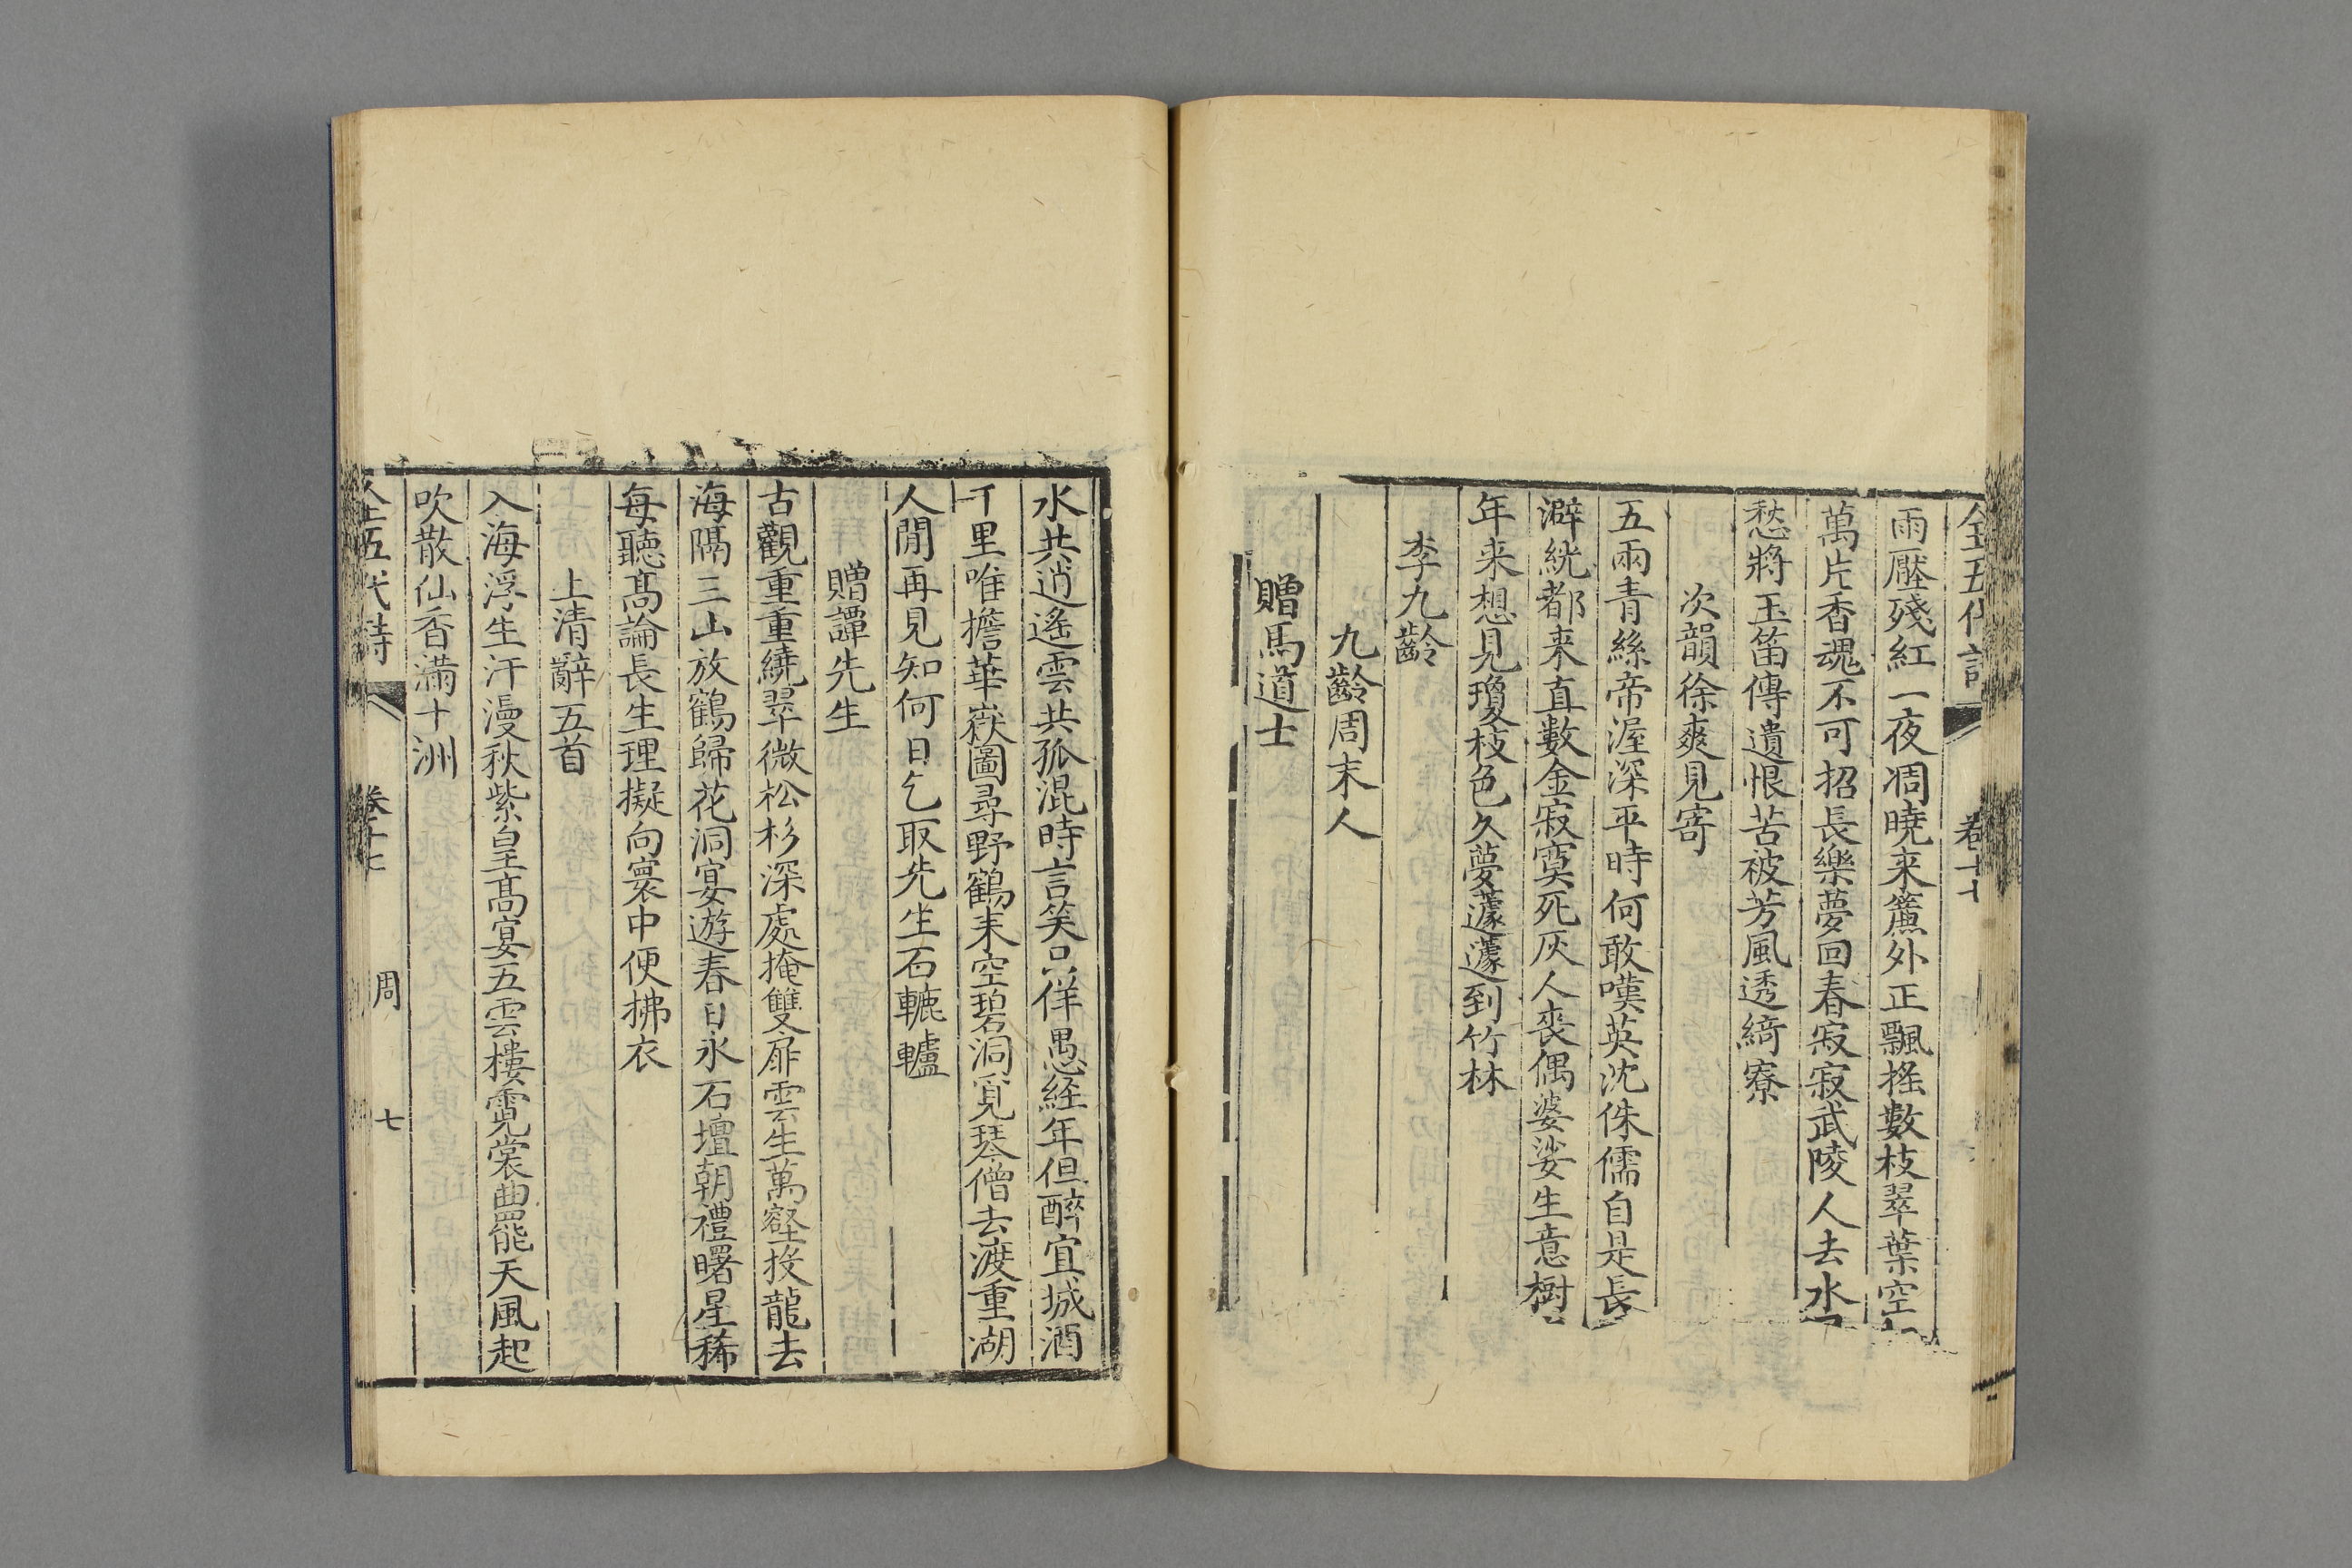 雨壓殘紅一夜凋曉来簾外正飄揺數枝翠葉空
萬片香魂不可招長樂夢回春寂寂武陵人去水
愁將玉笛傳遺恨苦被芳風透綺寮
次韻徐爽見寄
五兩青絲帝渥深平時何敢嘆英沈侏儒自是長
澼絖都来直數金寂寞死灰人喪偶婆娑生意樹
年来想見瓊枝色久夢蘧蘧到竹林
李九齡
九齡周末人
贈馬道士
水共逍遙雲共孤混時言笑只佯愚経年但醉宜城酒
千里唯擔華嶽圖尋野鶴来空碧洞覓琴僧去渡重湖
人閒再見知何日乞取先生石轆轤
贈譚先生
古觀重重繞翠微松杉深處掩雙扉雲生萬壑投龍去
海隔三山放鶴歸花洞宴遊春日永石壇朝禮曙星稀
每聽髙論長生理擬向寰中便拂衣
上清辭五首
入海浮生汗漫秋紫皇髙宴五雲樓霓裳曲罷天風起
吹散仙香滿十洲
全五代詩 卷十七 周 七